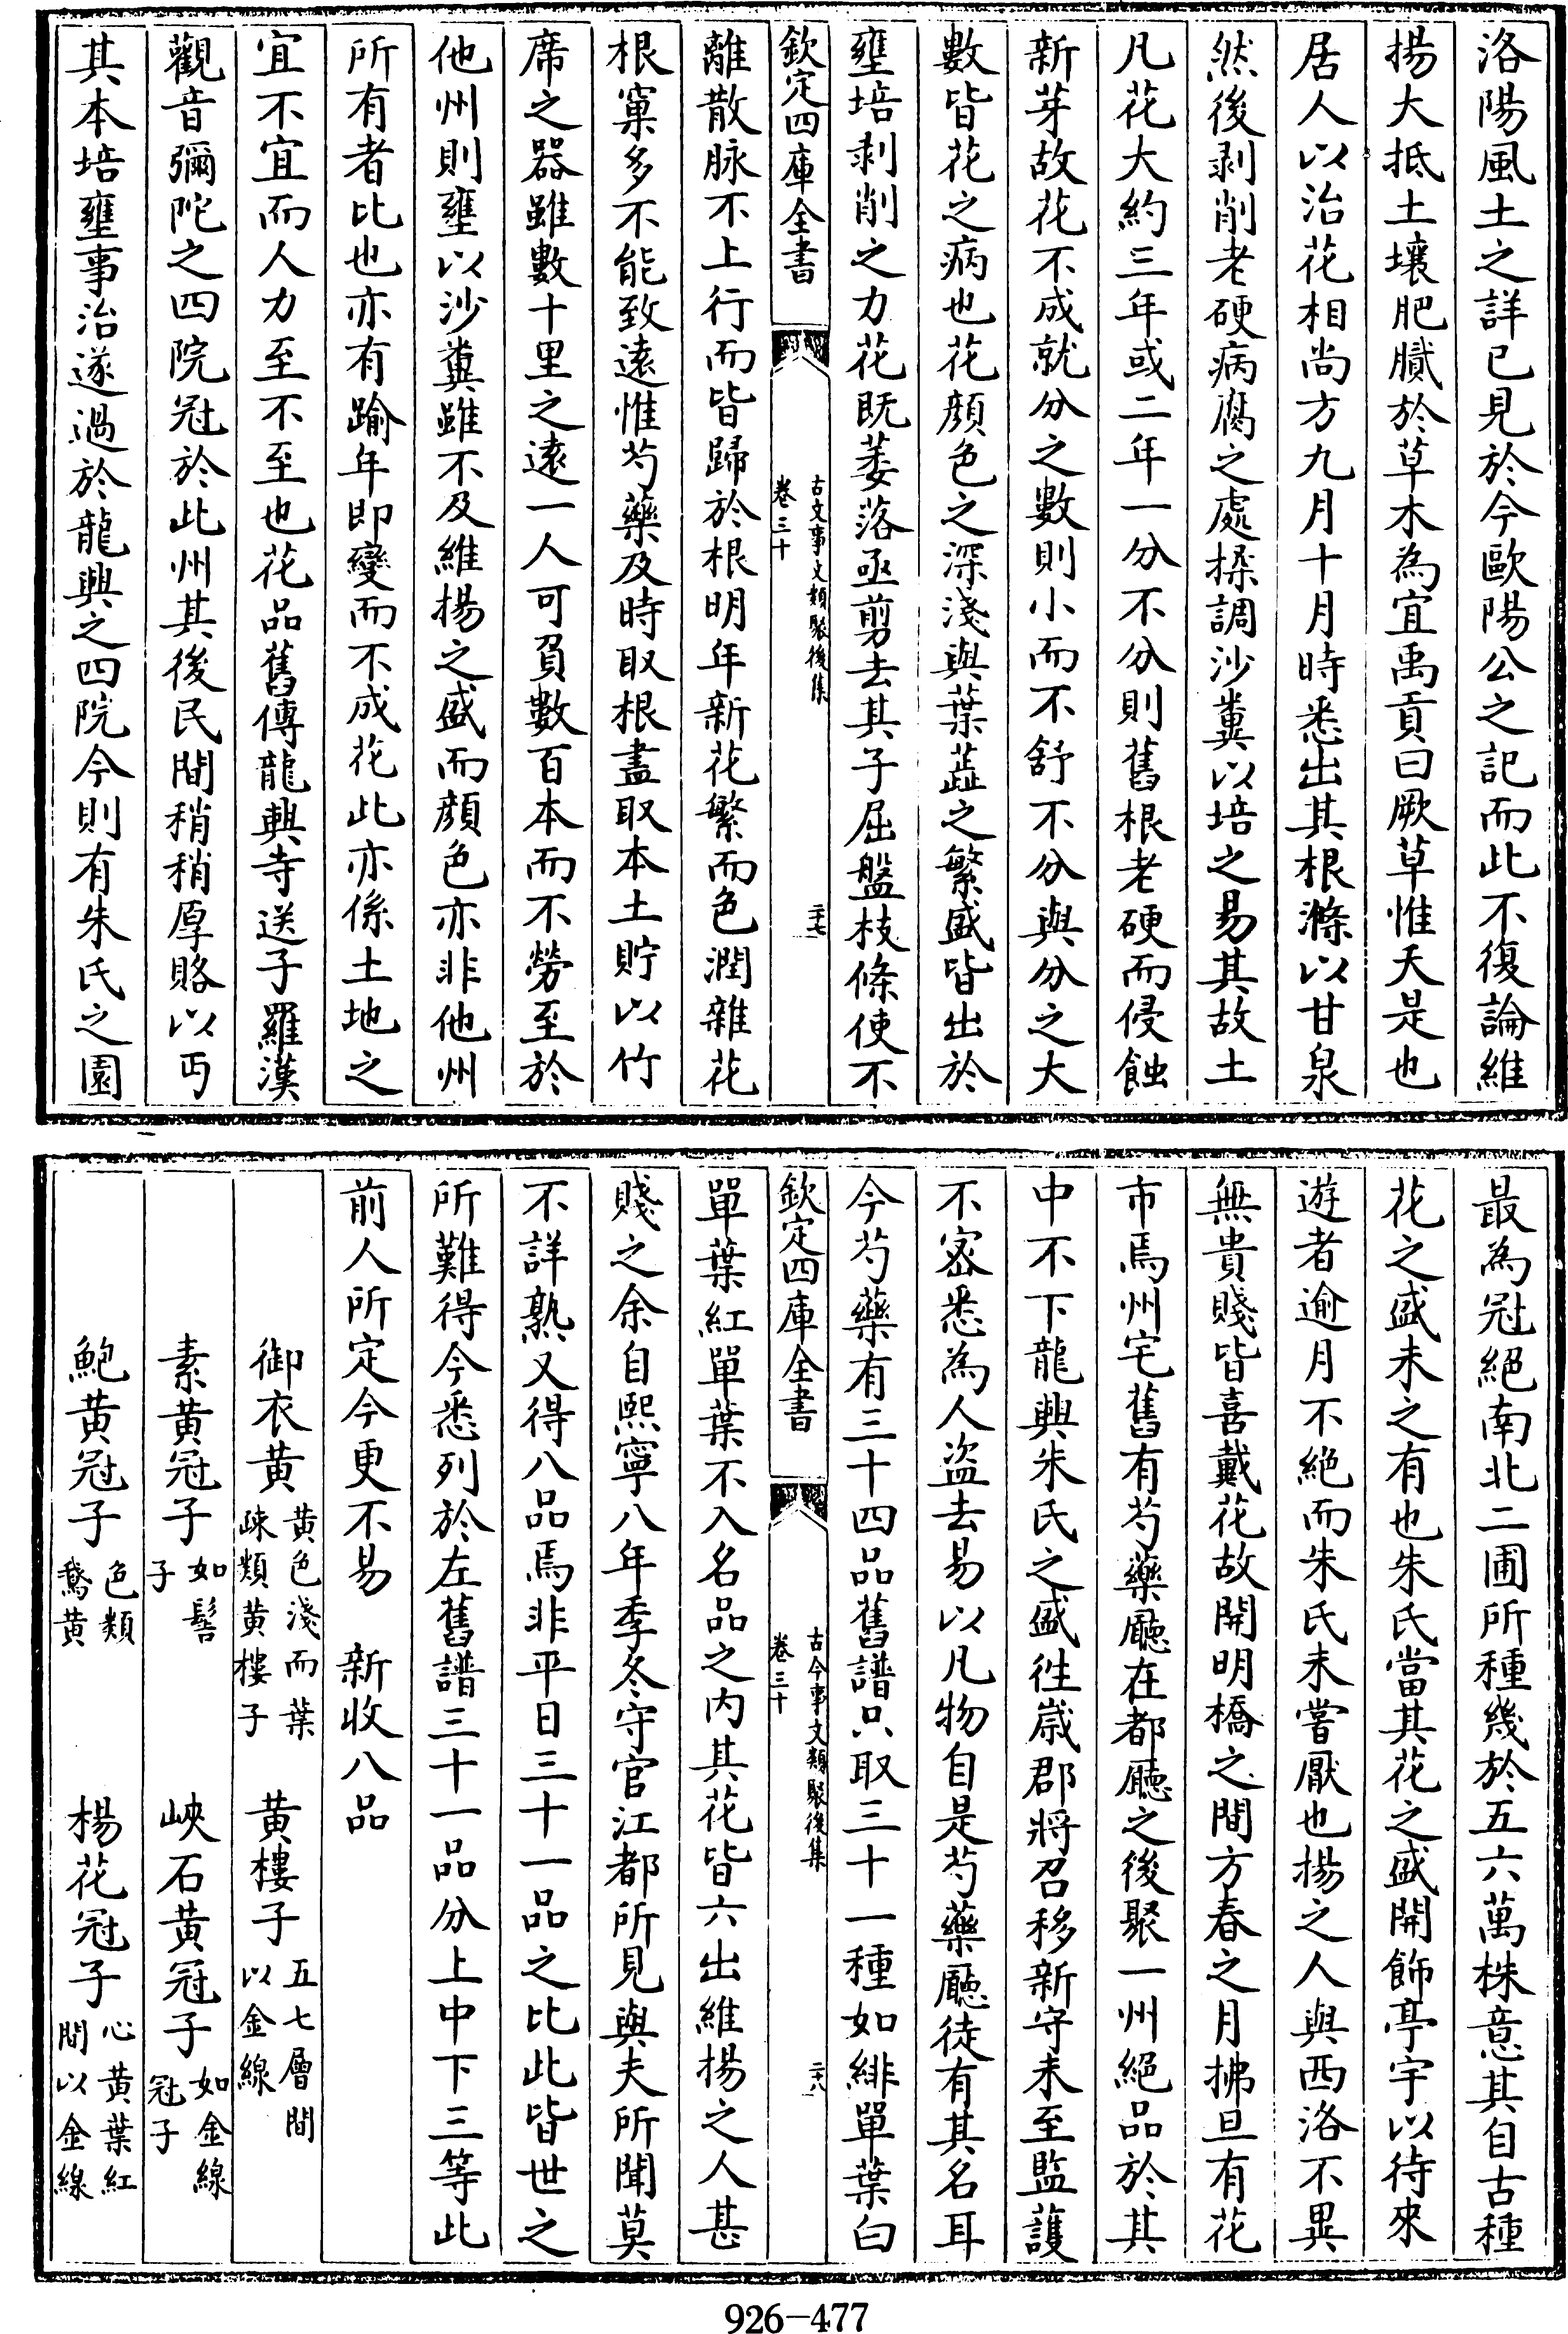 洛陽風土之詳已見於今歐陽公之記而此不復論維
揚大抵土壤肥膩於草木為宜禹貢曰厥草惟夭是也
居人以治花相尚方九月十月時悉出其根滌以甘泉
然後剥削老硬病腐之處揉調沙糞以培之易其故土
凡花大約三年或二年一分不分則舊根老硬而侵蝕
新芽故花不成就分之數則小而不舒不分與分之大
數皆花之病也花顔色之深淺與葉蘂之繁盛皆出於
壅培剥削之力花既萎落亟剪去其子屈盤枝條使不
欽定四庫全書
古文事文類聚後集
卷三十
二十七
離散脉不上行而皆歸於根明年新花繁而色潤雜花
根窠多不能致逺惟芍藥及時取根盡取本土貯以竹
席之器雖數十里之逺一人可負數百本而不勞至於
他州則壅以沙糞雖不及維揚之盛而顔色亦非他州
所有者比也亦有踰年即變而不成花此亦係土地之
宜不宜而人力至不至也花品舊傳龍興寺送子羅漢
觀音彌陀之四院冠於此州其後民間稍稍厚賂以丐
其本培壅事治遂過於龍興之四院今則有朱氏之園
最為冠絕南北二圃所種幾於五六萬株意其自古種
花之盛未之有也朱氏當其花之盛開飾亭宇以待來
遊者逾月不絕而朱氏未嘗厭也揚之人與西洛不異
無貴賤皆喜戴花故開明橋之間方春之月拂旦有花
市焉州宅舊有芍藥廳在都廳之後聚一州絕品於其
中不下龍興朱氏之盛徃歳郡將召移新守未至監護
不密悉為人盗去易以凡物自是芍藥廳徒有其名耳
今芍藥有三十四品舊譜只取三十一種如緋單葉白
欽定四庫全書
古今事文類聚後集
卷三十
二十八
單葉紅單單葉不入名品之內其花皆六出維揚之人甚
賤之余自熙寧八年季冬守官江都所見與夫所聞莫
不詳熟又得八品焉非平日三十一品之比此皆世之
所難得今悉列於左舊譜三十一品分上中下三等此
前人所定今更不易 新收八品
御衣黄 黄色淺而葉疎類黄樓子 黄樓子 五七層間以金線
素黄冠子 如髻子 峽石黄冠子 如金線冠子
鮑黄冠子 色類鵞黄 楊花冠子 心黄葉紅間以金線
926-477